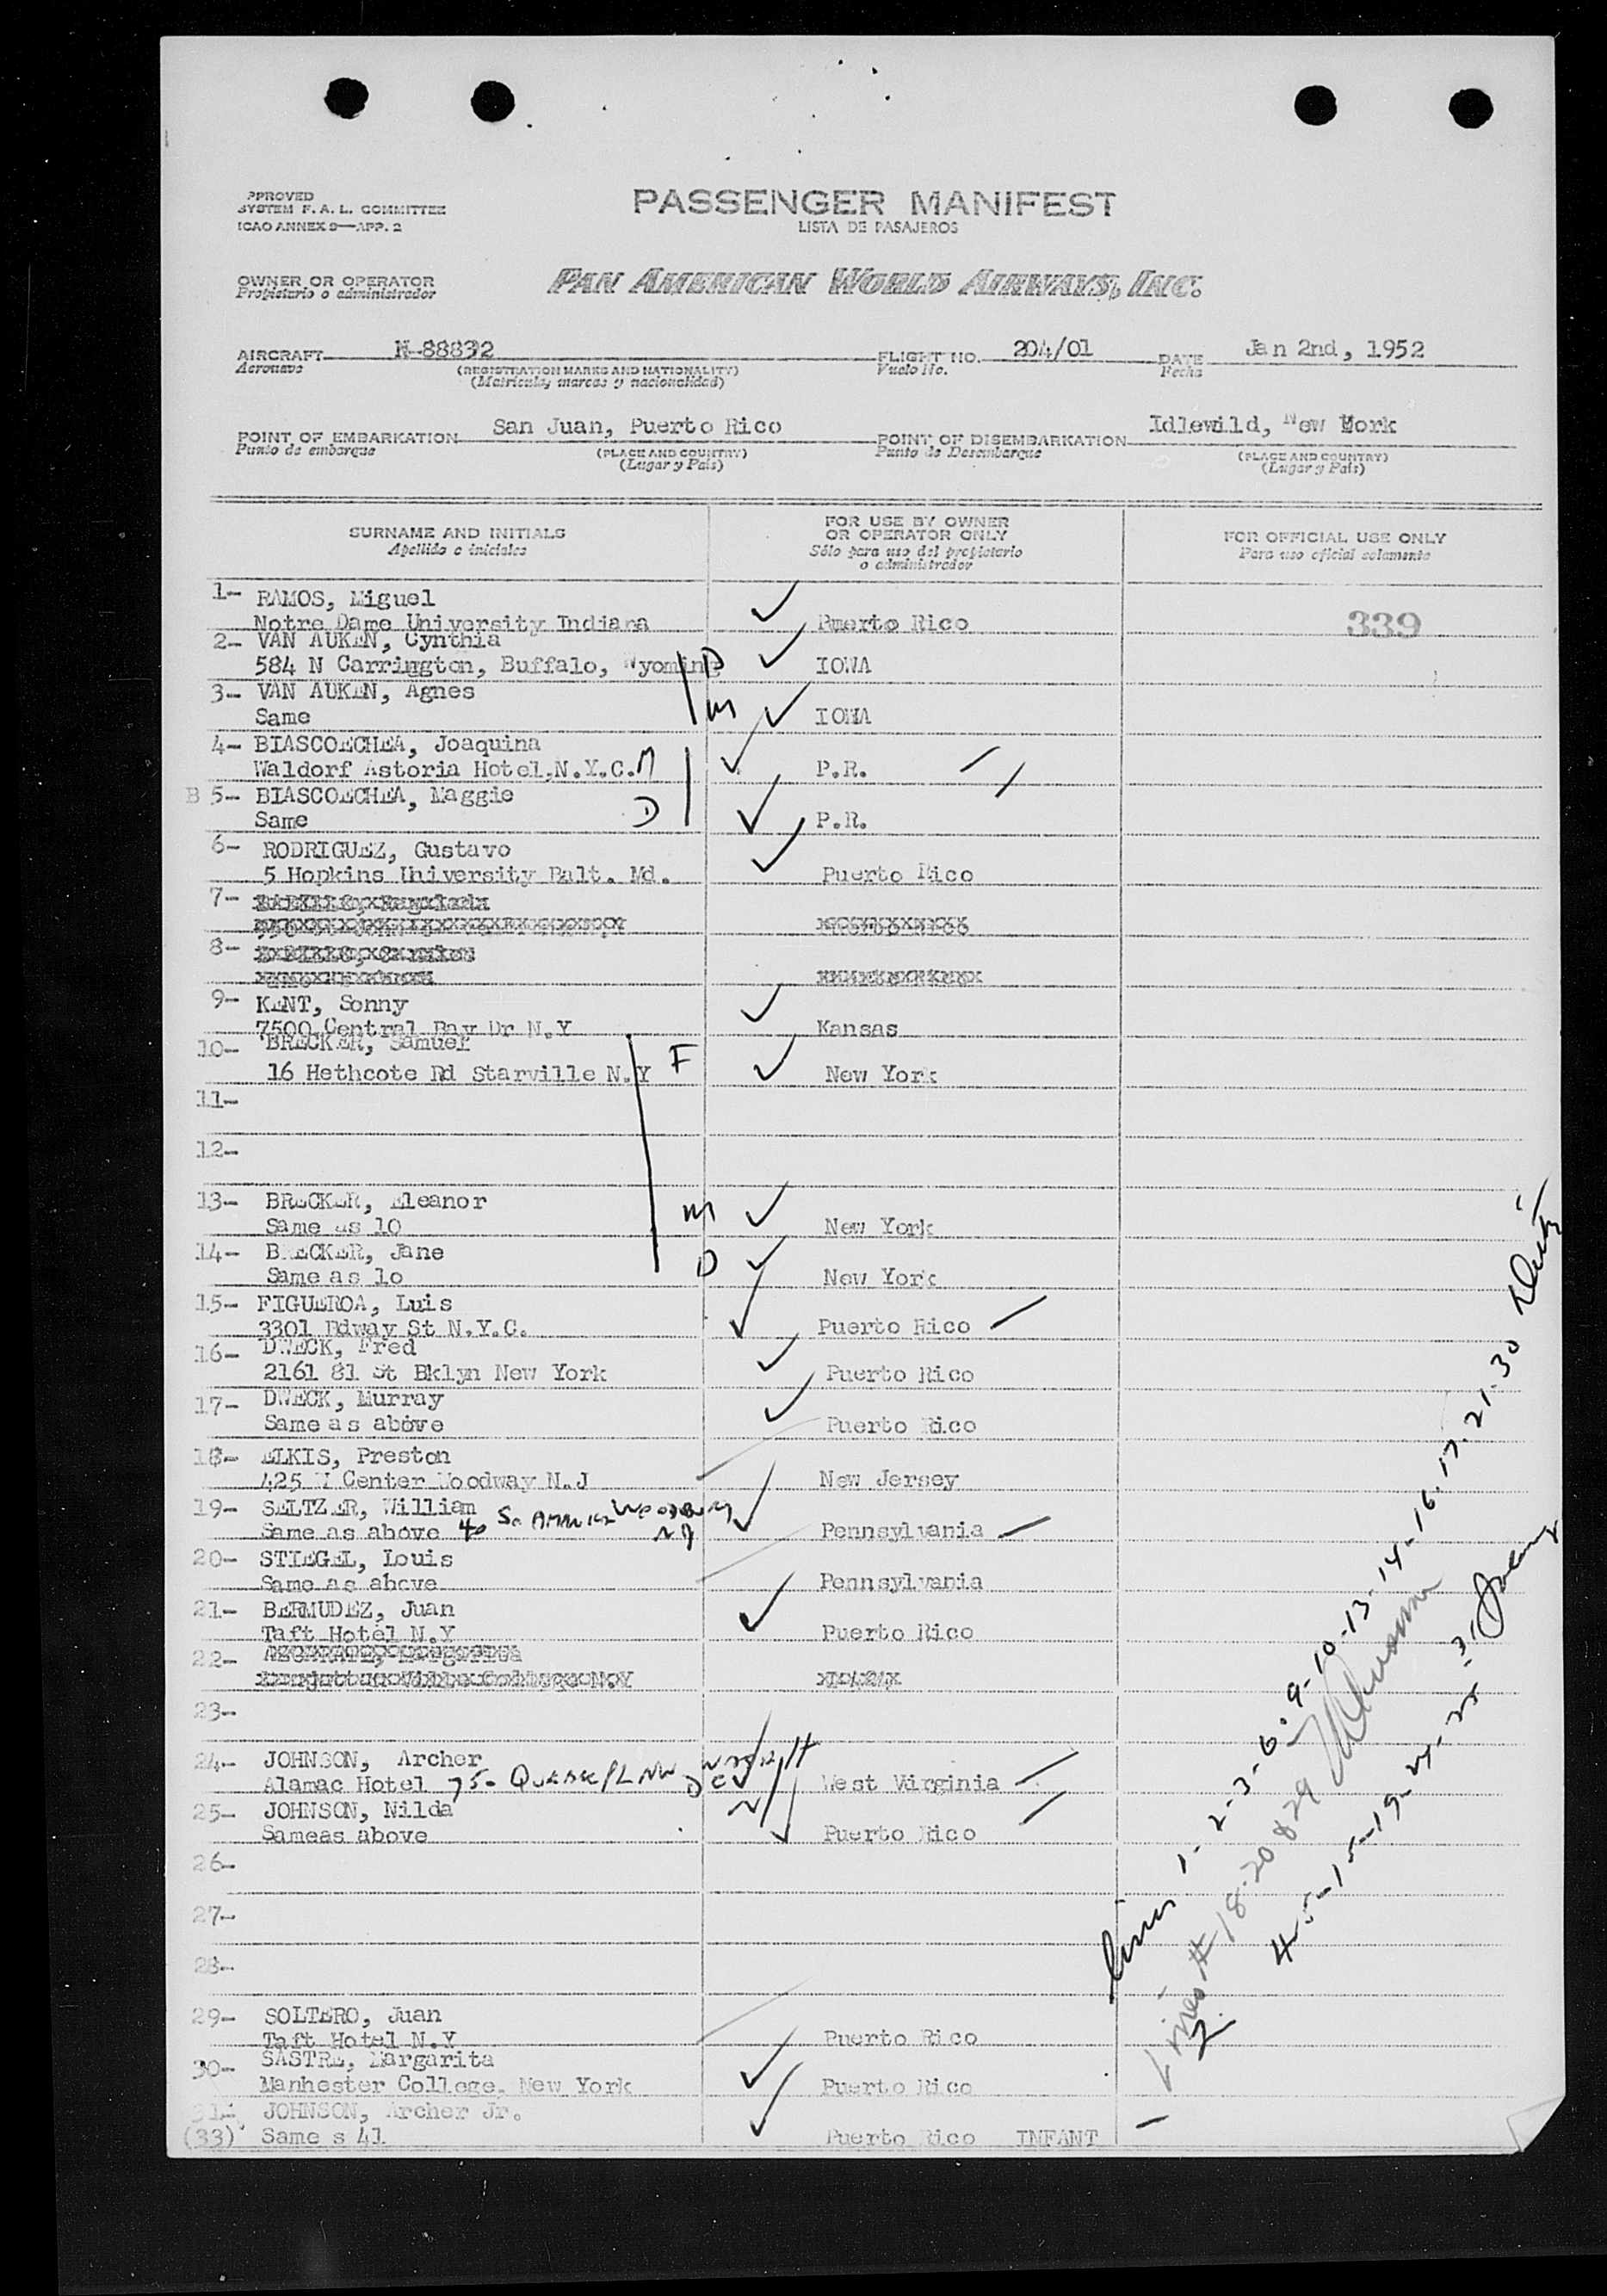 PPROVED
SYSTEM F. A. L. COMMITTEE
ICAO ANNEX 9—APP. 2
PASSENGER MANIFEST
LISTA DE PASAJEROS
OWNER OR OPERATOR
Propietario o administrador
PAN AMERICAN WORLD AIRWAYS, INC.
AIRCRAFT N-88832 FLIGHT NO. 204/01 DATE Jan 2nd, 1952
Aeronave (REGISTRATION MARKS AND NATIONALITY) Vuelo No. Fecha
(Matricula, marcas y nacionalidad)
POINT OF EMBARKATION San Juan, Puerto Rico POINT OF DISEMBARKATION Idlewild, New York
Punto de embarque (PLACE AND COUNTRY) Punto de Desembarque (PLACE AND COUNTRY)
(Lugar y País) (Lugar y País)
SURNAME AND INITIALS FOR USE BY OWNER OR OPERATOR ONLY FOR OFFICIAL USE ONLY
Apellido e iniciales Sólo para uso del propietario o administrador Para uso oficial solamente
1- RAMOS, Miguel
Notre Dame University Indiana Puerto Rico 339
2- VAN AUKEN, Cynthia
584 N Carrington, Buffalo, Wyoming D IOWA
3- VAN AUKEN, Agnes
Same M IOWA
4- BIASCOECHEA, Joaquina
Waldorf Astoria Hotel, N.Y.C. M P.R.
B 5- BIASCOECHEA, Maggie
Same D P.R.
6- RODRIGUEZ, Gustavo
5 Hopkins University Balt. Md. Puerto Rico
7-
8-
9- KENT, Sonny
7500 Central Bay Dr N.Y Kansas
10- BRECKER, Samuel
16 Hethcote Rd Starville N.Y F New York
11-
12-
13- BRECKER, Eleanor
Same as 10 M New York
14- BRECKER, Jane
Same as 10 D New York
15- FIGUEROA, Luis
3301 Bdway St N.Y.C. Puerto Rico
16- DWECK, Fred
2161 81 St Bklyn New York Puerto Rico
17- DWECK, Murray
Same as above Puerto Rico
18- ELKIS, Preston
425 Center Woodway N.J New Jersey
19- SELTZER, William
Same as above 40 So Woodbury NJ Pennsylvania
20- STIEGEL, Louis
Same as above Pennsylvania
21- BERMUDEZ, Juan
Taft Hotel N.Y Puerto Rico
22-
23-
24- JOHNSON, Archer
Alamac Hotel 75- NW D C West Virginia
25- JOHNSON, Nilda
Sameas above Puerto Rico
26-
27-
28-
29- SOLTERO, Juan
Taft Hotel N.Y Puerto Rico
30- SASTRE, Margarita
Manhester College, New York Puerto Rico
31- JOHNSON, Archer Jr.
(33) Same s 41 Puerto Rico INFANT
Lines 1-2-3-6-9-10-13-14-16-17-21-30
Lines # 18-20 & 29
4-5-15-19-24-25-31